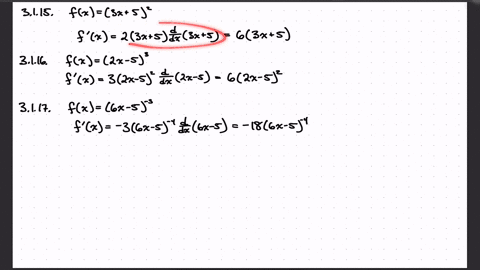 3.1.15. f(x) = (3x+5)²
f'(x) = 2(3x+5) d/dx (3x+5) = 6(3x+5)
3.1.16. f(x) = (2x-5)³
f'(x) = 3(2x-5)² d/dx (2x-5) = 6(2x-5)²
3.1.17. f(x) = (6x-5)⁻³
f'(x) = -3(6x-5)⁻⁴ d/dx (6x-5) = -18(6x-5)⁻⁴